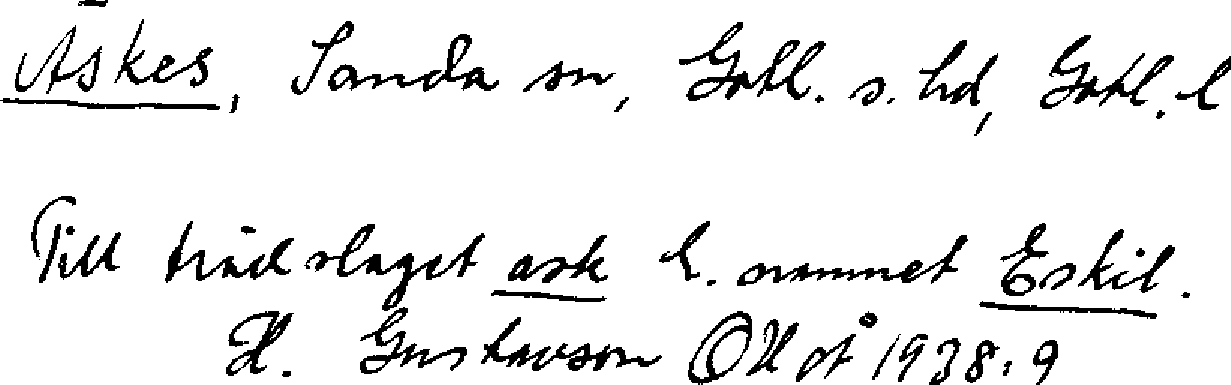 Askes, Sanda sn, Gotl. s. hd, Gotl. l
Till trädslaget ask l. namnet Eskil.
H. Gustavson 1938. 9